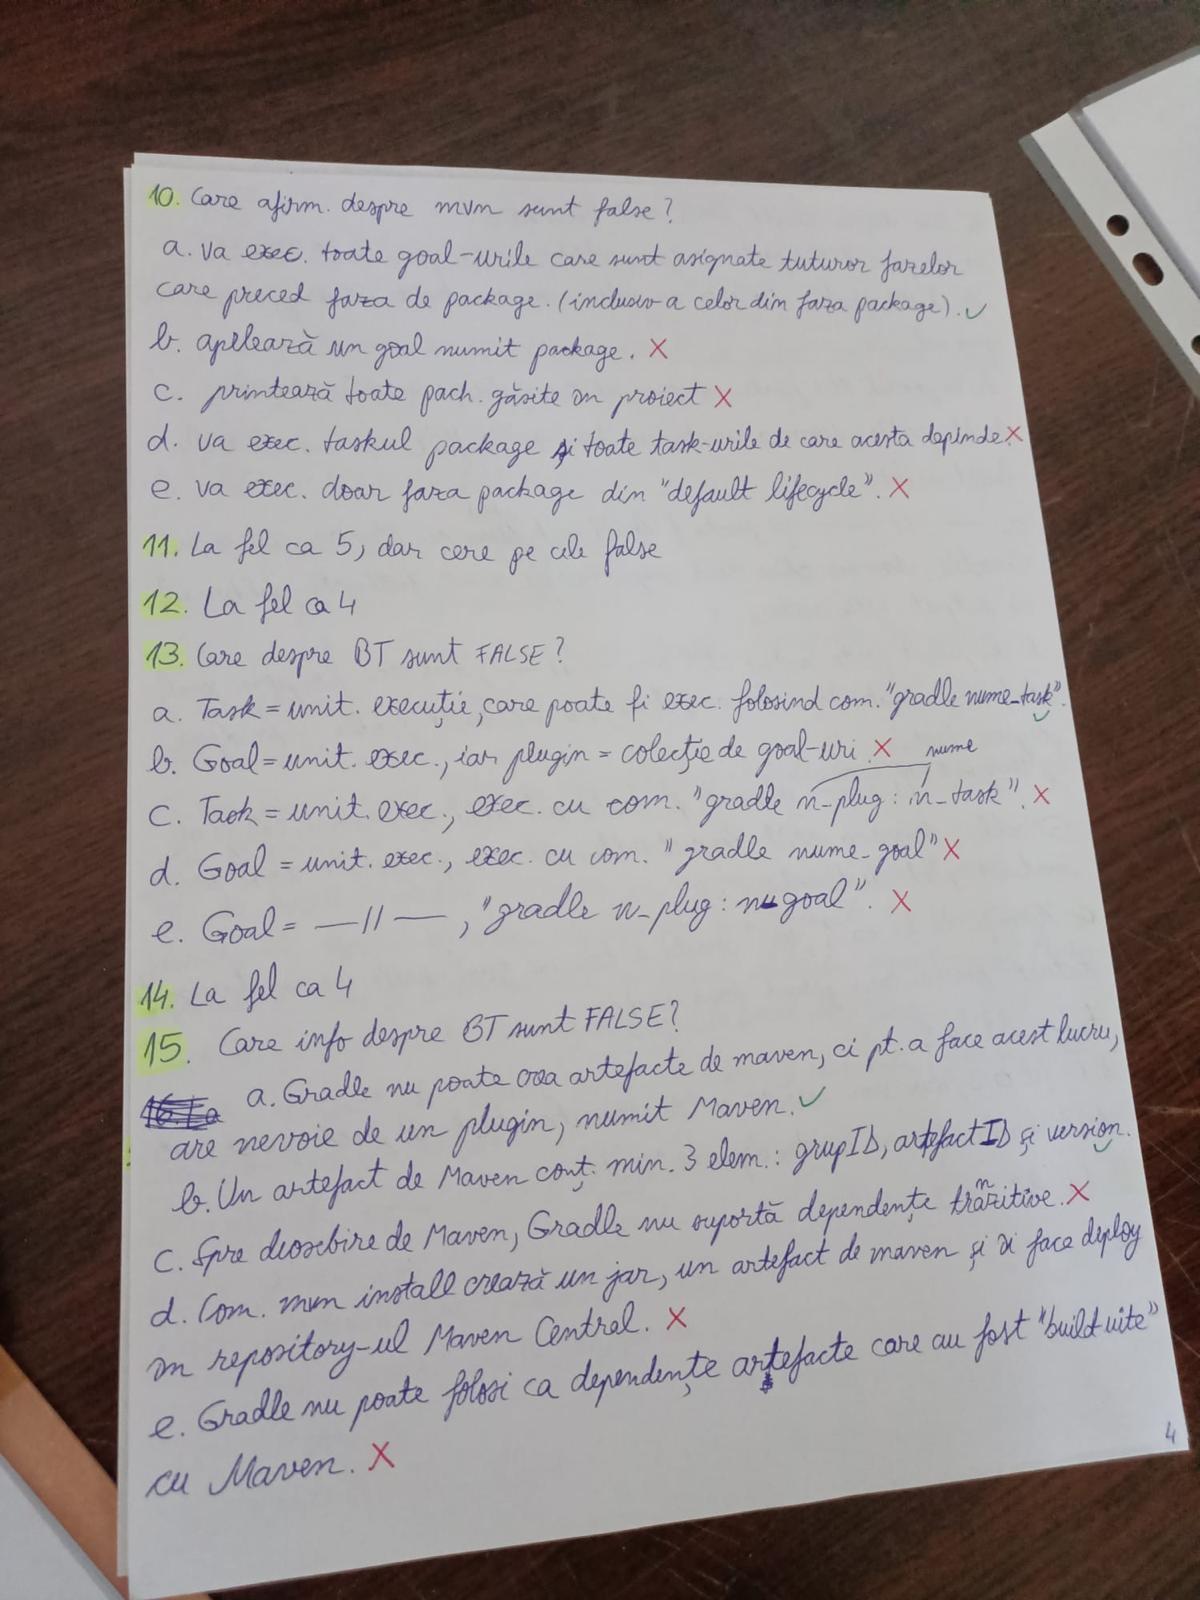 10. Care afirm. despre mvn sunt false?
a. va exec. toate goal-urile care sunt asignate tuturor fazelor
care preced faza de package. (inclusiv a celor din faza package). ✓
b. apelează un goal numit package. X
c. printează toate pach. găsite în proiect X
d. va exec. taskul package și toate task-urile de care acesta depinde X
e. va exec. doar faza package din "default lifecycle". X
11. La fel ca 5, dar cere pe cele false
12. La fel ca 4
13. Care despre BT sunt FALSE?
a. Task = unit. execuție, care poate fi exec. folosind com. "gradle nume_task". ✓
b. Goal = unit. exec., iar plugin = colecție de goal-uri X
nume
c. Task = unit. exec., exec. cu com. "gradle n_plug: n_task". X
d. Goal = unit. exec., exec. cu com. "gradle nume_goal" X
e. Goal = —//— , "gradle n_plug: n_goal". X
14. La fel ca 4
15. Care info despre BT sunt FALSE?
a. Gradle nu poate crea artefacte de maven, ci pt. a face acest lucru,
are nevoie de un plugin, numit Maven. ✓
b. Un artefact de Maven conț. min. 3 elem.: grupID, artefactID și version. ✓
c. Spre deosebire de Maven, Gradle nu suportă dependențe tranzitive. X
d. Com. mvn install crează un jar, un artefact de maven și îi face deploy
în repository-ul Maven Central. X
e. Gradle nu poate folosi ca dependențe artefacte care au fost "build-uite"
cu Maven. X
4